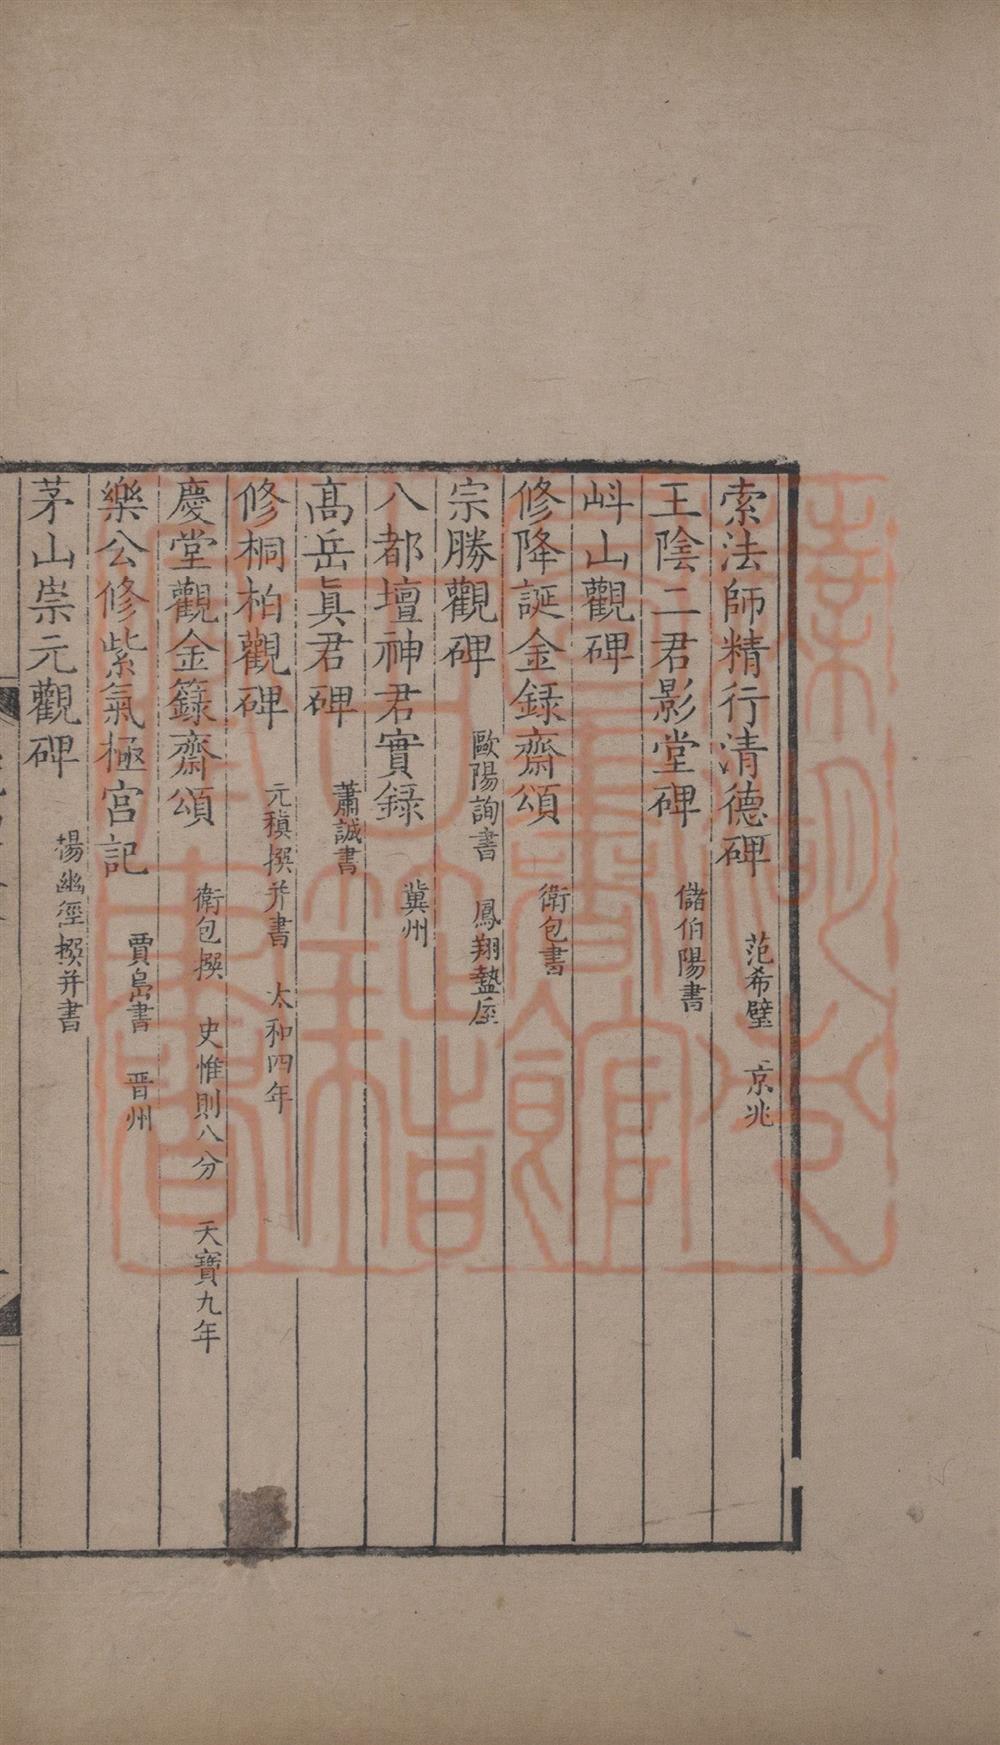 索法師精行清德碑 范希璧 京兆
王陰二君影堂碑 儲伯陽書
㞳山觀碑
修降誕金録齋頌 衛包書
宗勝觀碑 歐陽詢書 鳳翔盩厔
八都壇神君實録 冀州
高岳眞君碑 蕭誠書
修桐柏觀碑 元稹撰并書 太和四年
慶堂觀金籙齋頌 衛包撰 史惟則八分 天寶九年
樂公修紫氣極宮記 賈島書 晋州
茅山崇元觀碑 楊幽徑撰并書